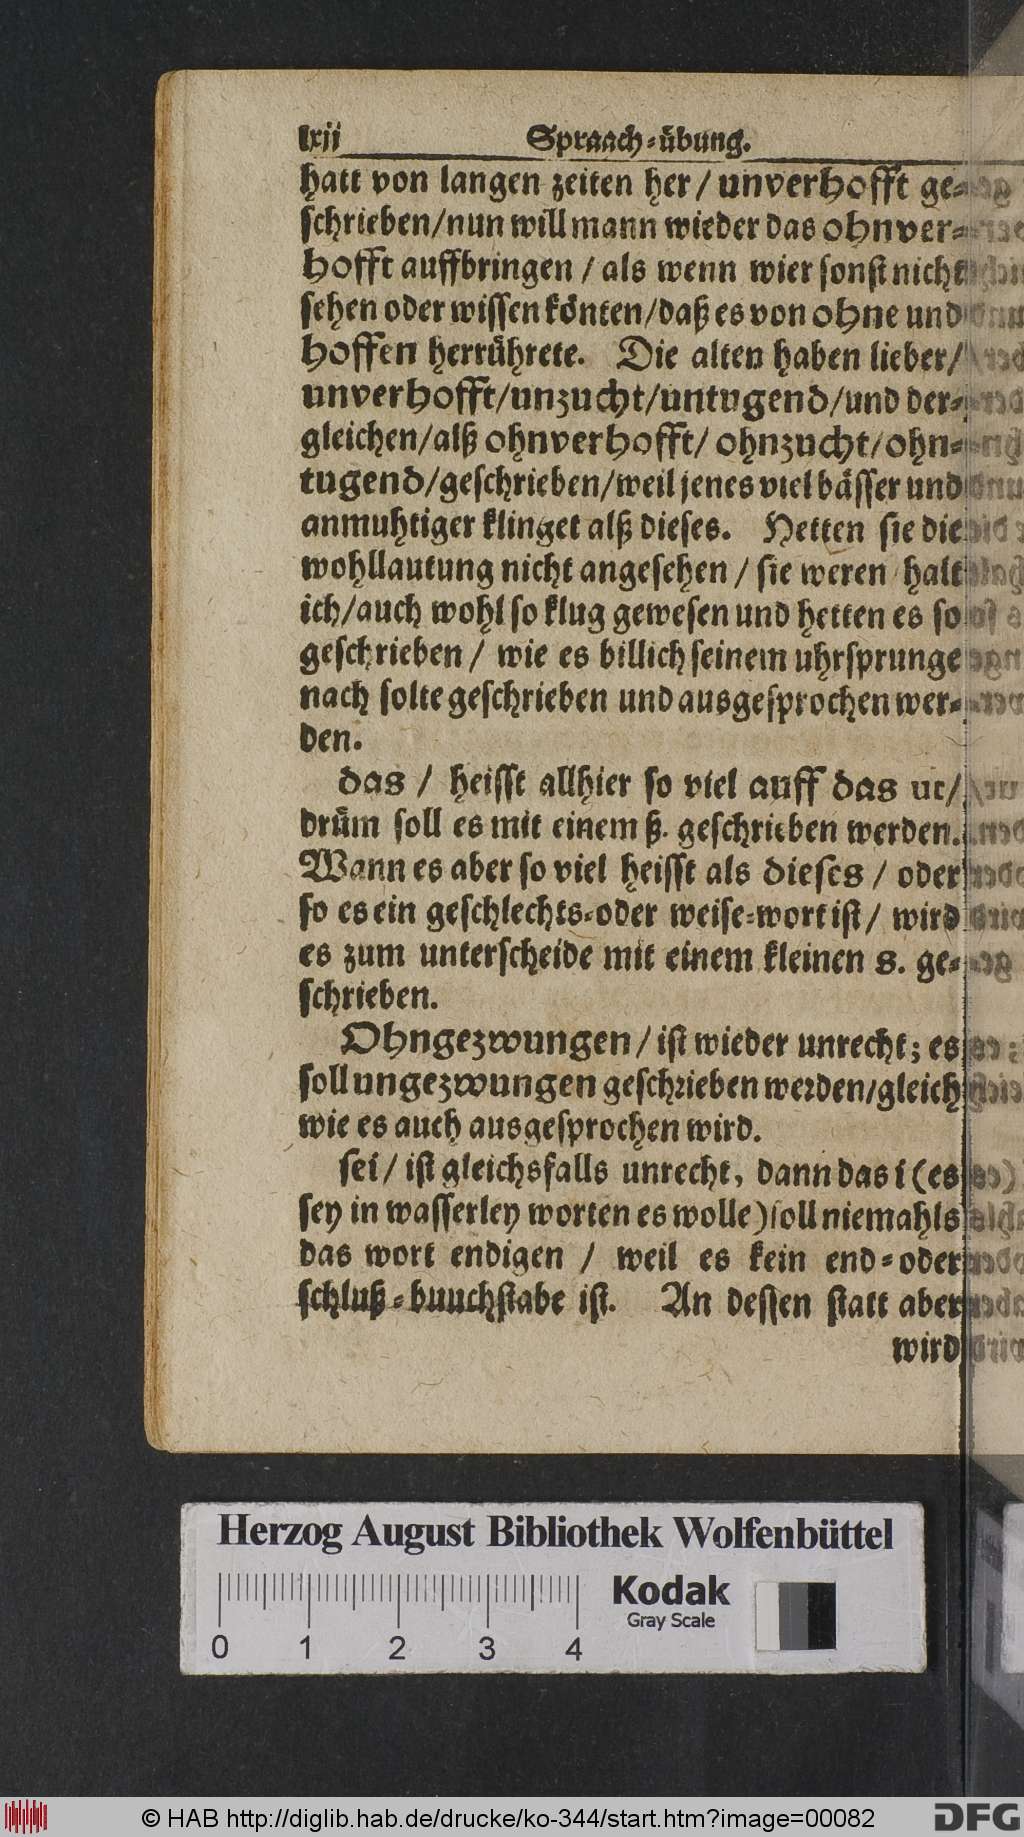 lxii Spraach-übung.
hatt von langen zeiten her / unverhofft ge-
schrieben/nun will mann wieder das ohnver-
hofft auffbringen / als wenn wier sonst nicht
sehen oder wissen könten/daß es von ohne und
hoffen herrührete. Die alten haben lieber/
unverhofft/unzucht/untugend/und der-
gleichen/alß ohnverhofft/ ohnzucht/ohn-
tugend/geschrieben/weil jenes viel bässer und
anmuhtiger klinget alß dieses. Hetten sie die
wohllautung nicht angesehen / sie weren halt
ich/auch wohl so klug gewesen und hetten es so
geschrieben / wie es billich seinem uhrsprunge
nach solte geschrieben und ausgesprochen wer-
den.
das / heisst allhier so viel auff das ut/
drüm soll es mit einem ß. geschrieben werden.
Wann es aber so viel heisst als dieses / oder
so es ein geschlechts-oder weise-wort ist / wird
es zum unterscheide mit einem kleinen s. ge-
schrieben.
Ohngezwungen / ist wieder unrecht; es
soll ungezwungen geschrieben werden/gleich
wie es auch ausgesprochen wird.
sei / ist gleichsfalls unrecht, dann das i (es
sey in wasserley worten es wolle) soll niemahls
das wort endigen / weil es kein end-oder
schluß-buuchstabe ist. An dessen statt aber
wird
Herzog August Bibliothek Wolfenbüttel
Kodak
Gray Scale
0 1 2 3 4
© HAB http://diglib.hab.de/drucke/ko-344/start.htm?image=00082
DFG